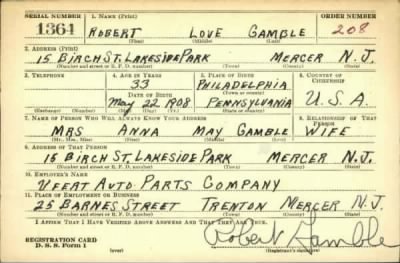 SERIAL NUMBER 1. NAME (Print) ORDER NUMBER
1364 ROBERT LOVE GAMBLE 208
(First) (Middle) (Last)
2. ADDRESS (Print)
15 BIRCH ST. LAKESIDE PARK MERCER N.J.
(Number and street or R. F. D. number) (Town) (County) (State)
3. TELEPHONE 4. AGE IN YEARS 5. PLACE OF BIRTH 6. COUNTRY OF CITIZENSHIP
33 PHILADELPHIA
DATE OF BIRTH (Town or county)
MAY 22 1908 PENNSYLVANIA U.S.A.
(Exchange) (Number) (Mo.) (Day) (Yr.) (State or country)
7. NAME OF PERSON WHO WILL ALWAYS KNOW YOUR ADDRESS 8. RELATIONSHIP OF THAT PERSON
MRS ANNA MAY GAMBLE WIFE
(Mr., Mrs., Miss) (First) (Middle) (Last)
9. ADDRESS OF THAT PERSON
15 BIRCH ST. LAKESIDE PARK MERCER N.J.
(Number and street or R. F. D. number) (Town) (County) (State)
10. EMPLOYER'S NAME
AUTO PARTS COMPANY
11. PLACE OF EMPLOYMENT OR BUSINESS
25 BARNES STREET TRENTON MERCER N.J.
(Number and street or R. F. D. number) (Town) (County) (State)
I AFFIRM THAT I HAVE VERIFIED ABOVE ANSWERS AND THAT THEY ARE TRUE.
Robert Gamble
REGISTRATION CARD
D. S. S. Form 1 (over) (Registrant's signature)